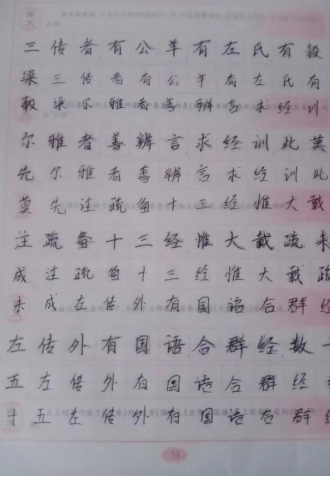 三传者有公羊有左氏有穀
梁三传者有公羊有左氏有
穀梁尔雅者善辨言求经训
尔雅者善辨言求经训此莫
先尔雅者善辨言求经训此
莫先注疏备十三经惟大戴
注疏备十三经惟大戴疏未
成注疏备十三经惟大戴疏
未成左传外有国语合群经
左传外有国语合群经数十
五左传外有国语合群经
十五左传外有国语合群经
11